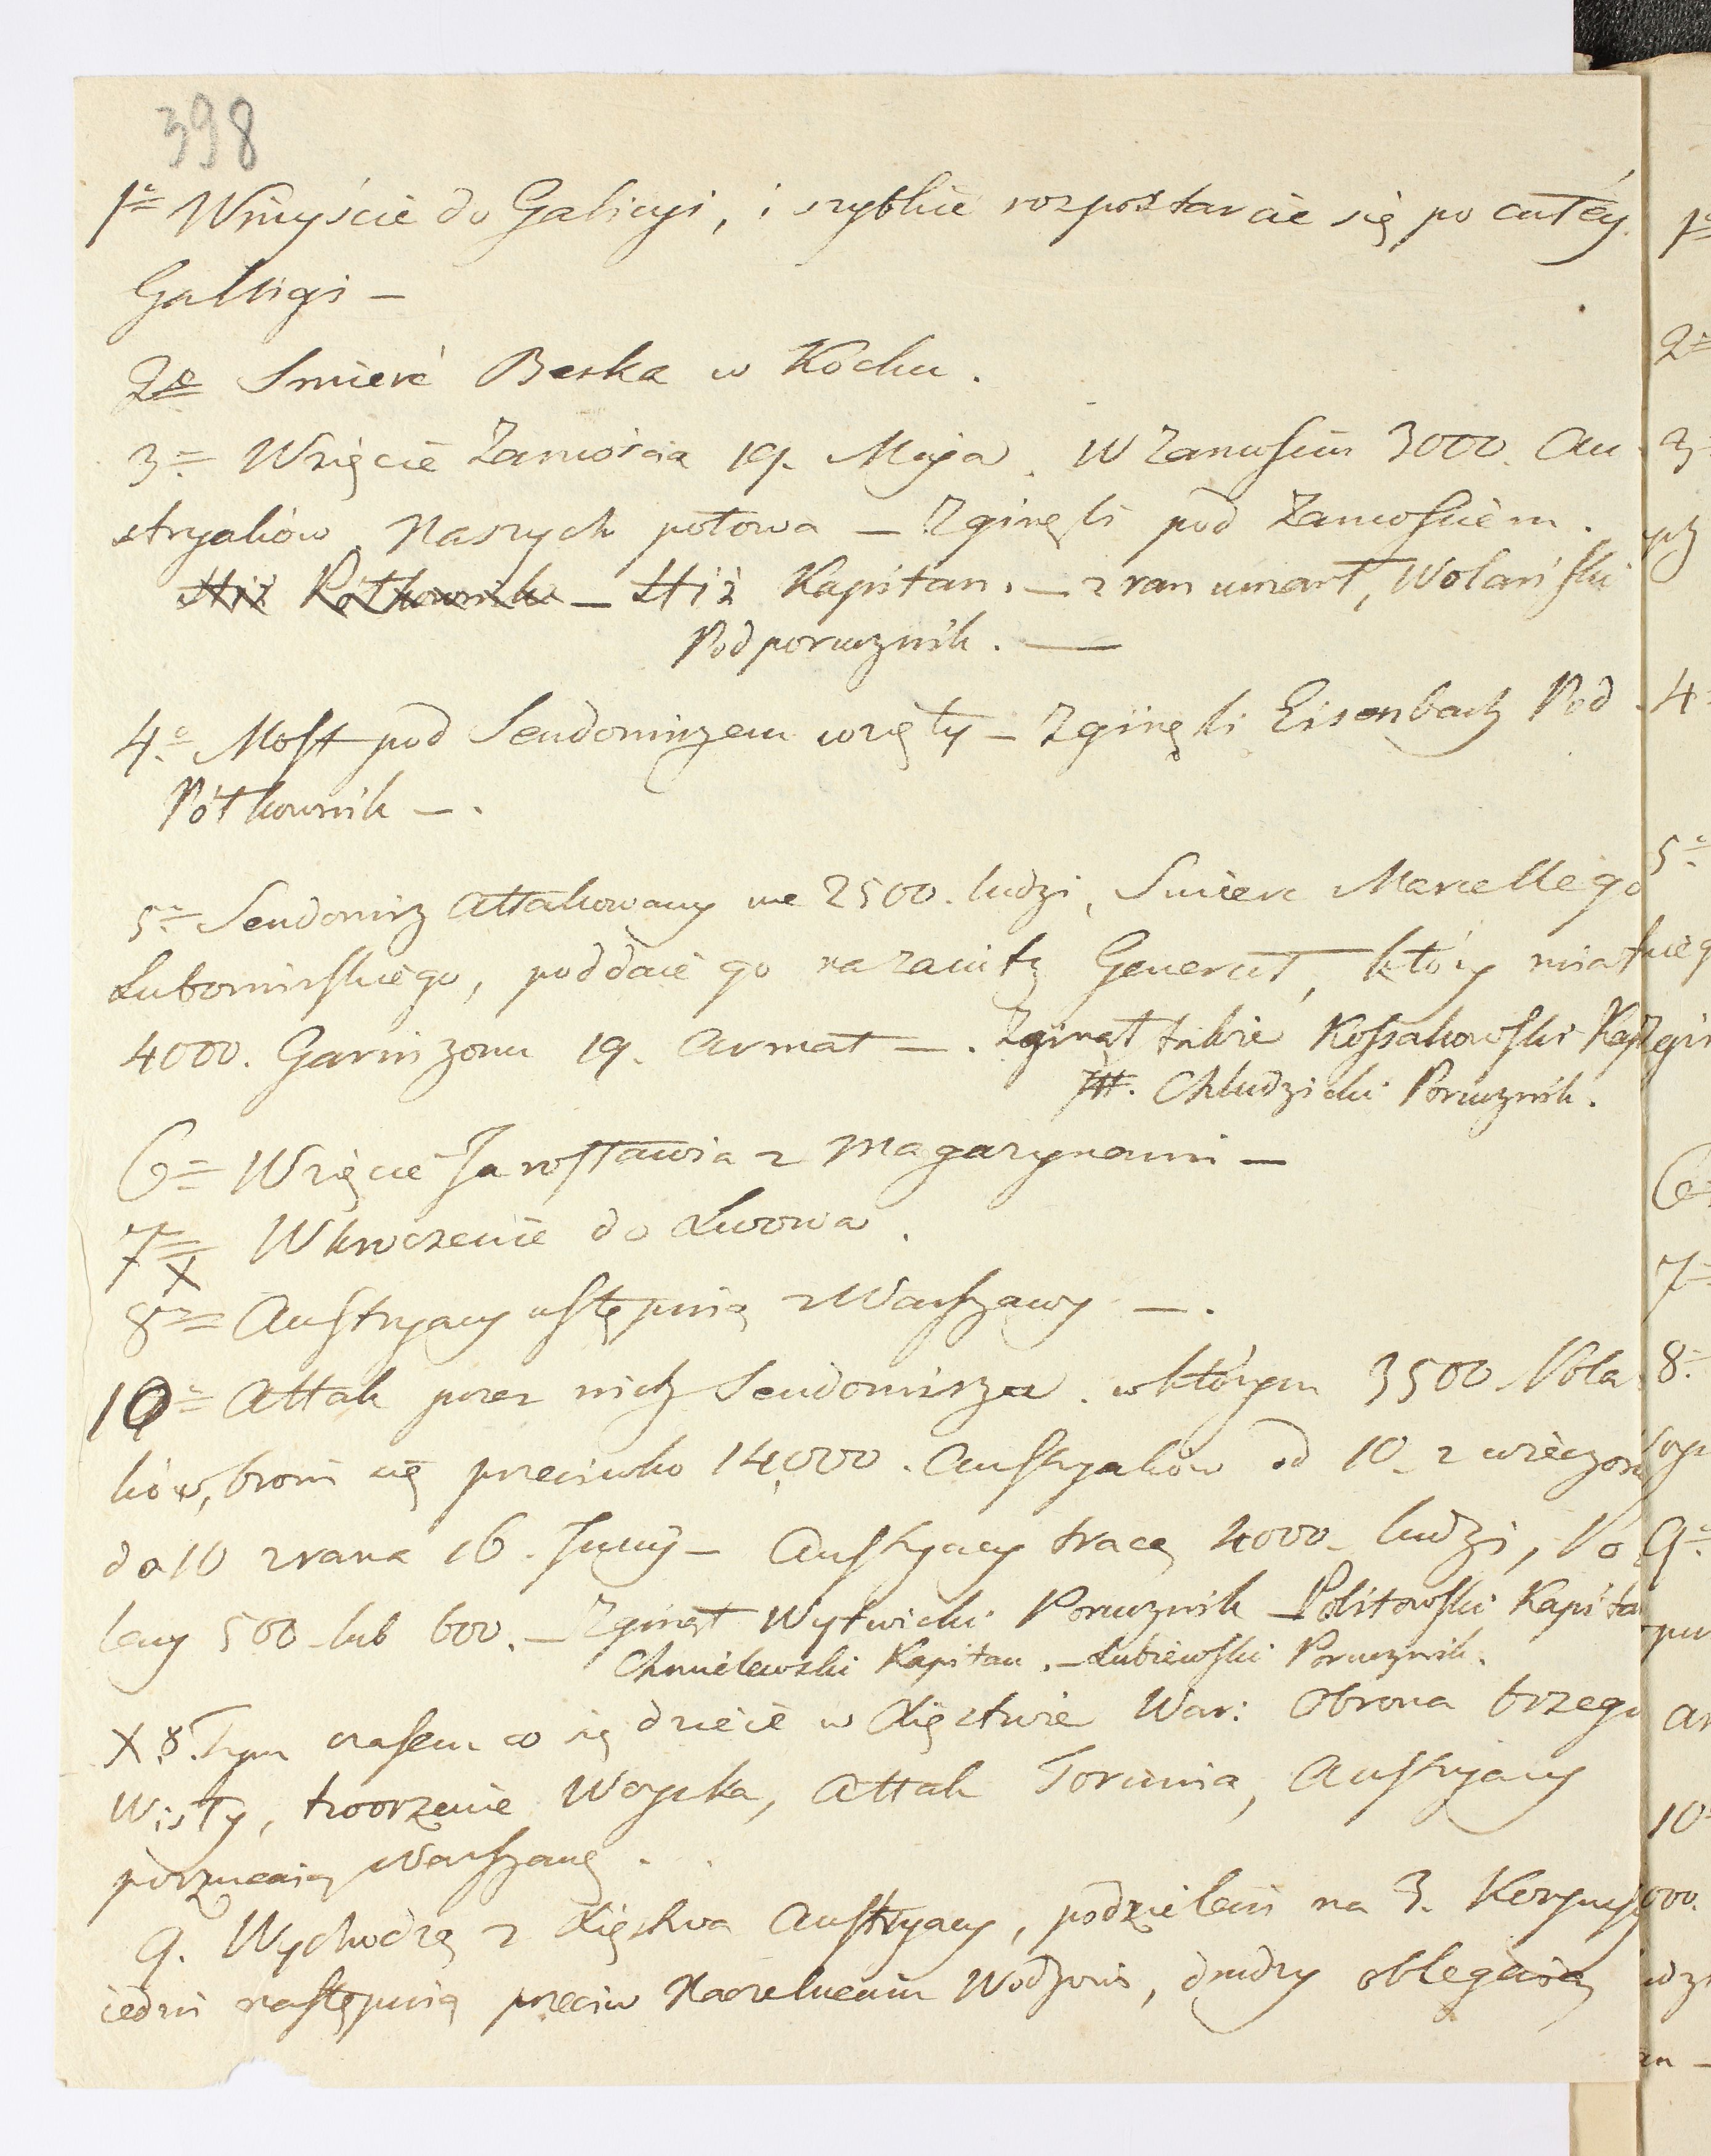 398
1º Wniyście do Galicyi, i szybkie rozpostarcie się po całéy
Gallicyi –
2º Smierć Berka w Kocku.
3º Wzięcie Zamościa 19. Maja. W Zamosciu 3000. Au
stryaków. Naszych połowa – Zginęli pod Zamosciem.
Hiż Półkownik – Hiż Kapitan. – z ran umarł, Wolański
Podporucznik. —
4º Most pod Sendomirzem wzięty – Zginęli Eisenbach Pod
Półkownik – .
5º Sendomirz attakowany we 2500. ludzi, Smierc Marcellego
Lubomirskiego, poddaie go nazaiutrz Generał, który miał
4000. Garnizonu 19. armat – . Zginął także Kossakowski Kap
Chludzicki Porucznik.
6º Wzięcie Jarosławia z magazynami –
7º Wkroczenie do Lwowa.
X
8º Austryacy ustępuią z Warszawy – .
10º Attak przez nich Sendomirza. w którym 3500 Pola
ków, broni się przeciwko 14,000. Austryaków od 10. z wieczora
do 10 zrana 16. Juny – Austryacy tracą 4000. ludzi, Po
lacy 500 lub 600. – Zginął Wytwicki Porucznik – Politowski Kapitan
Chmielewski Kapitan. – Lubiewski Porucznik.
X 8. Tym czasem co się dzieie w Xięstwie War: Obrona brzegu
Wisły, tworzenie Woyska, Attak Torunia, Austryacy
porzucaią Warszawę.
9. Wychodzą z Xięstwa Austryacy, podzieleni na 3. Korpusy
iedni następuią przeciw Naczelnemu Wodzowi, drudzy oblegaią